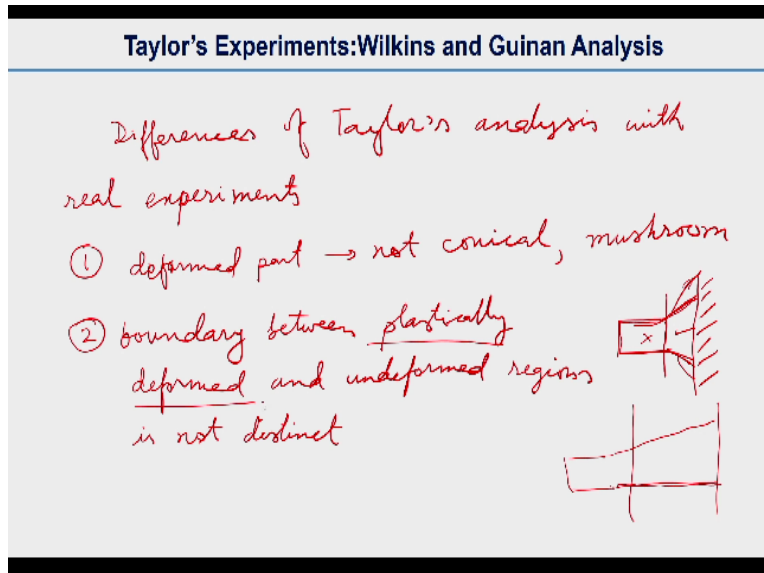 Taylor's Experiments:Wilkins and Guinan Analysis
Differences of Taylor's analysis with
real experiments
① deformed part → not conical, mushroom
② boundary between plastically
deformed and undeformed regions
is not distinct
x